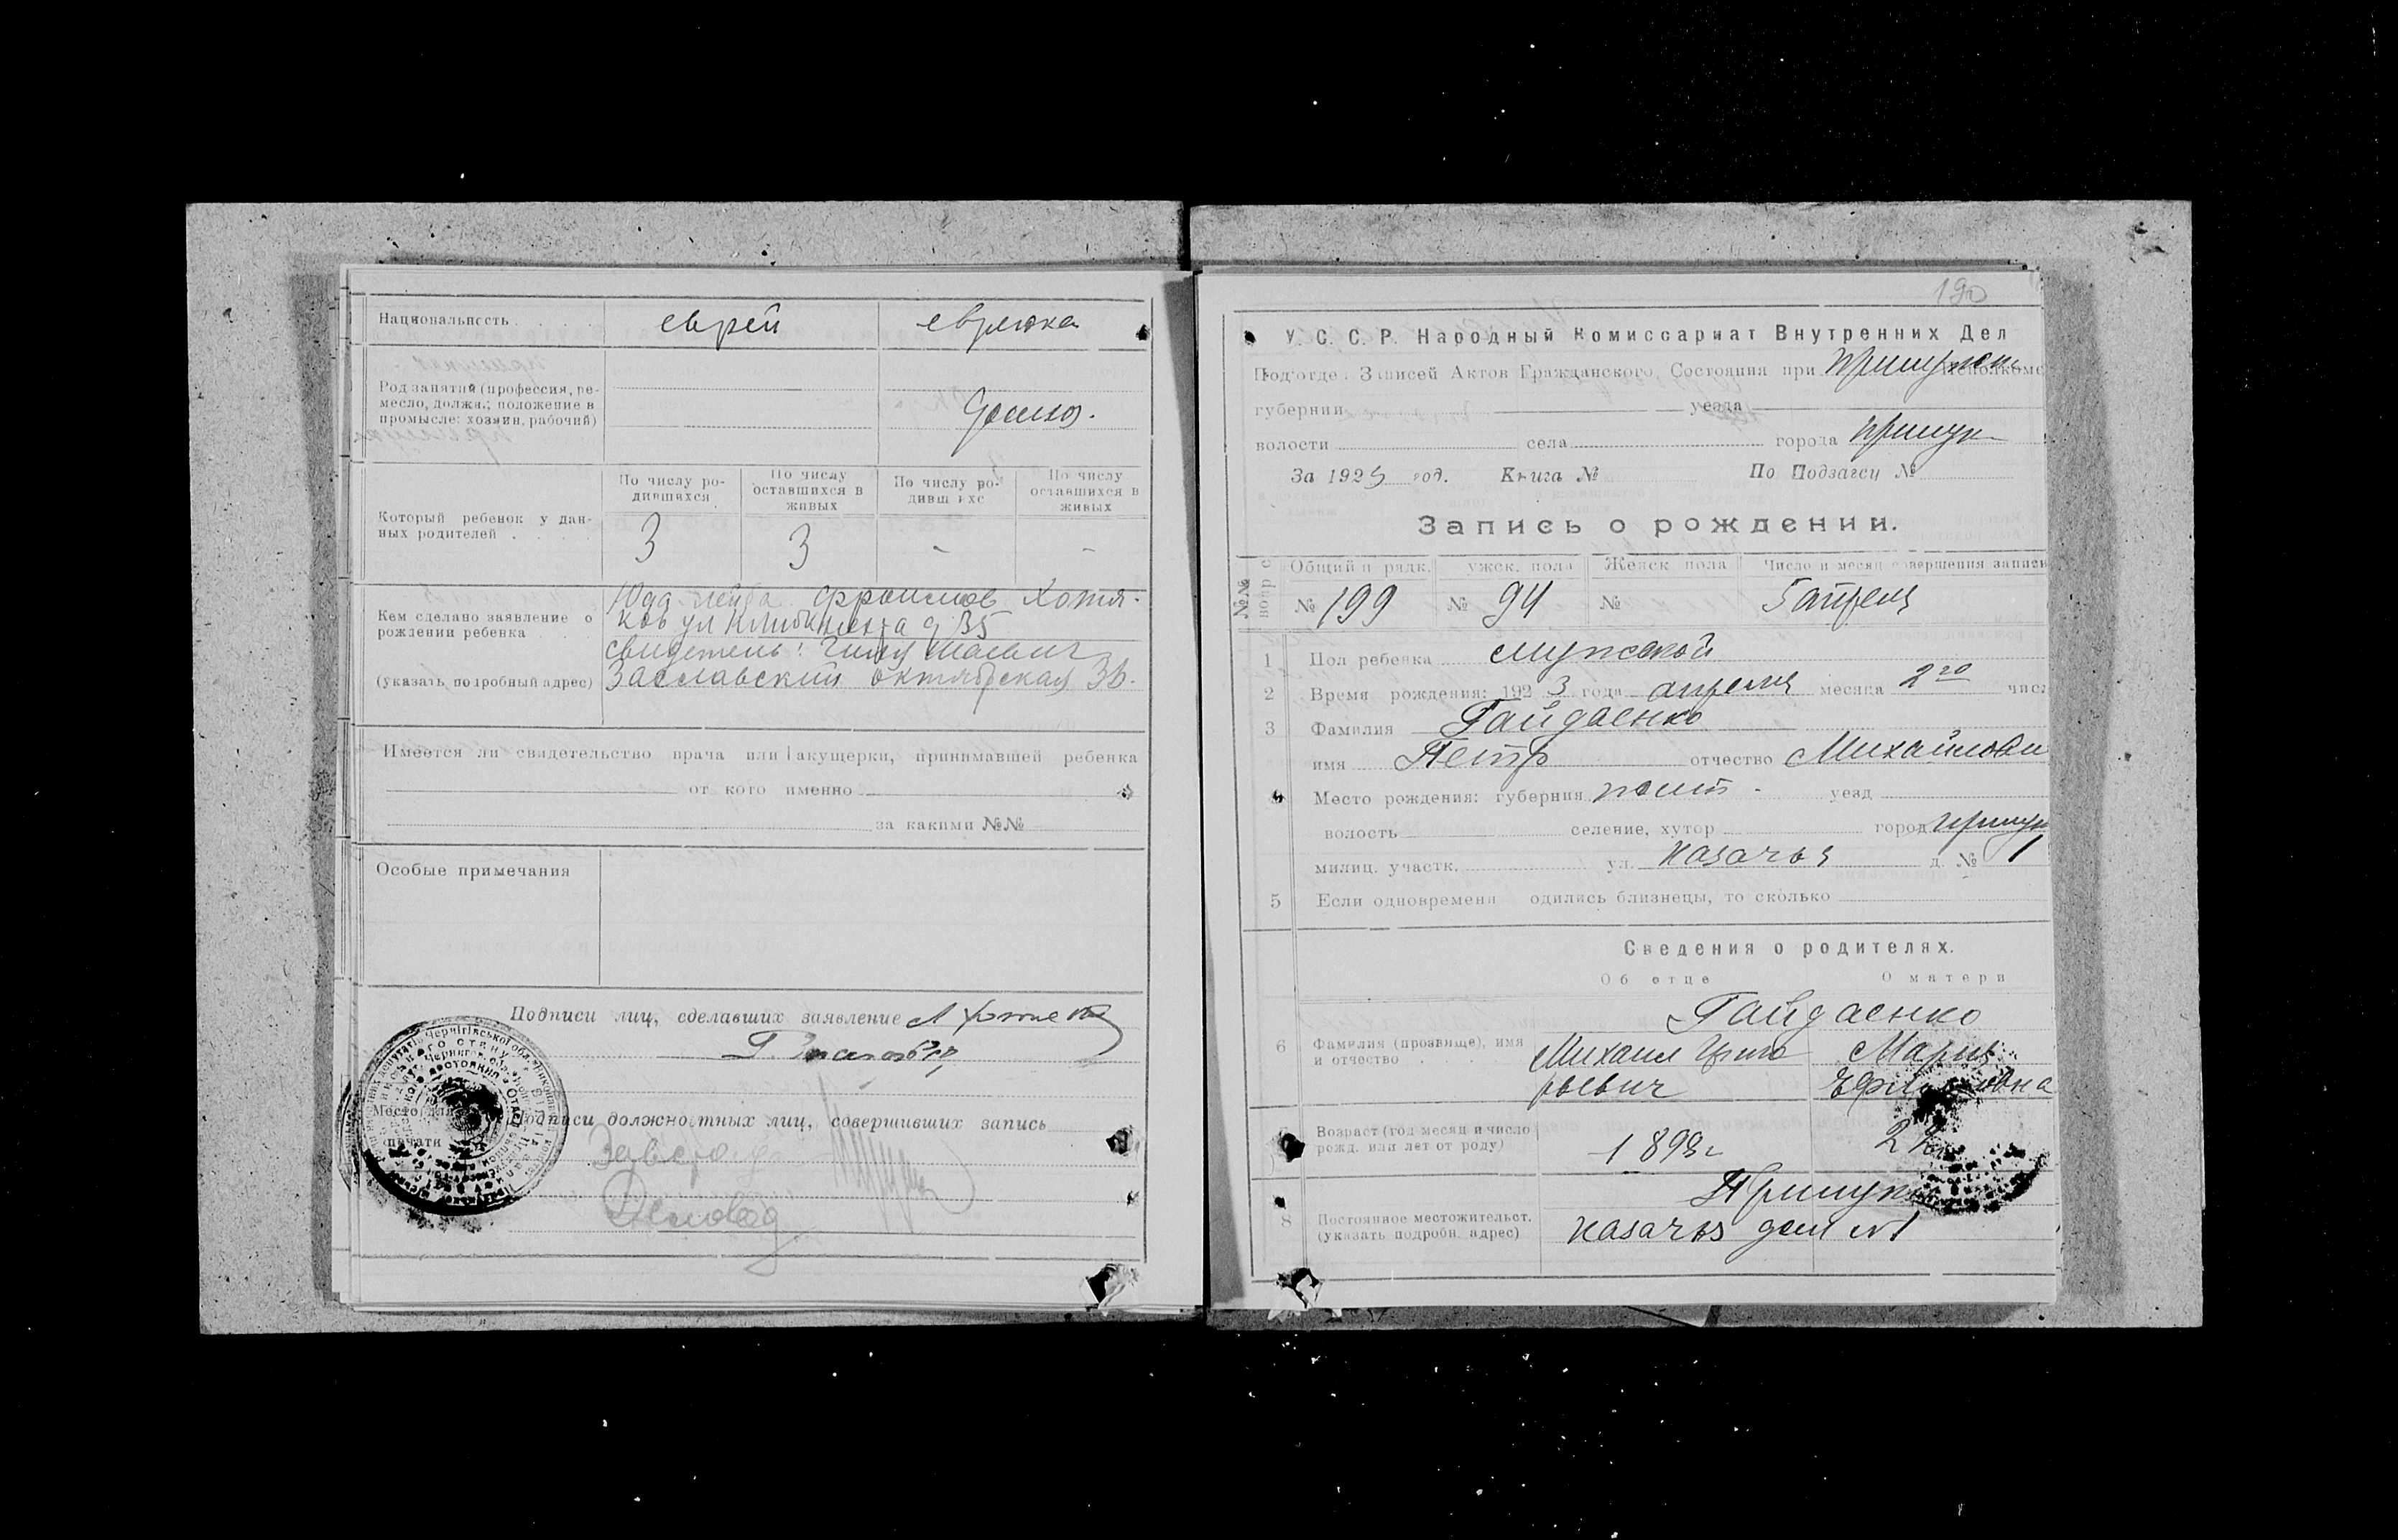 Национальность еврей еврейка
Род занятий (профессия, ре-
месло, должн.; положение в
промысле: хозяин, рабочий)
домхоз.
По числу ро-
дившихся
По числу
оставшихся в
живых
По числу ро-
дивш ихс
По числу
оставшихся в
живых
Который ребенок у дан-
ных родителей
3 3 - -
Кем сделано заявление о
рождении ребенка
(указать подробный адрес)
Юда Лейба Фроимов Хотя-
ков ул Клибкнехта д 35
свидетель:
Заславский октябрская 36.
Имеется ли свидетельство врача или акушерки, принимавшей ребенка
от кого именно
за какими №№
Особые примечания
Подписи лиц, сделавших заявление
Место для
печати
Подписи должностных лиц, совершивших запись
Деловод
190
У. С. С. Р. Народный Комиссариат Внутренних Дел
Подотдел Записей Актов Гражданского Состояния при
губернии уезда
волости села города Прилук
За 1923 год. Книга № По Подзагсу №
Запись о рождении.
№№
Общий п рядк. ужск. пола Женск пола Число и месяц совершения записи
№ 199 № 94 № 5 апреля
1 Пол ребенка мужской
2 Время рождения: 1923 года апреля месяца 2го числ
3 Фамилия Гайдаенко
имя Петр отчество Михайлови
Место рождения: губерния полт. уезд
волость селение, хутор город Прилук
милиц. участк. ул. Казачья д. № 1
5 Если одновременн одились близнецы, то сколько
Сведения о родителях.
Об отце О матери
Гайдаенко
6 Фамилия (прозвище), имя
и отчество
Михаил Григо
рьевич
Мария
Возраст (год месяц и число
рожд. или лет от роду)
1898г
8 Постоянное местожительст.
(указать подробн. адрес)
Прилуки
Казачья дом №1